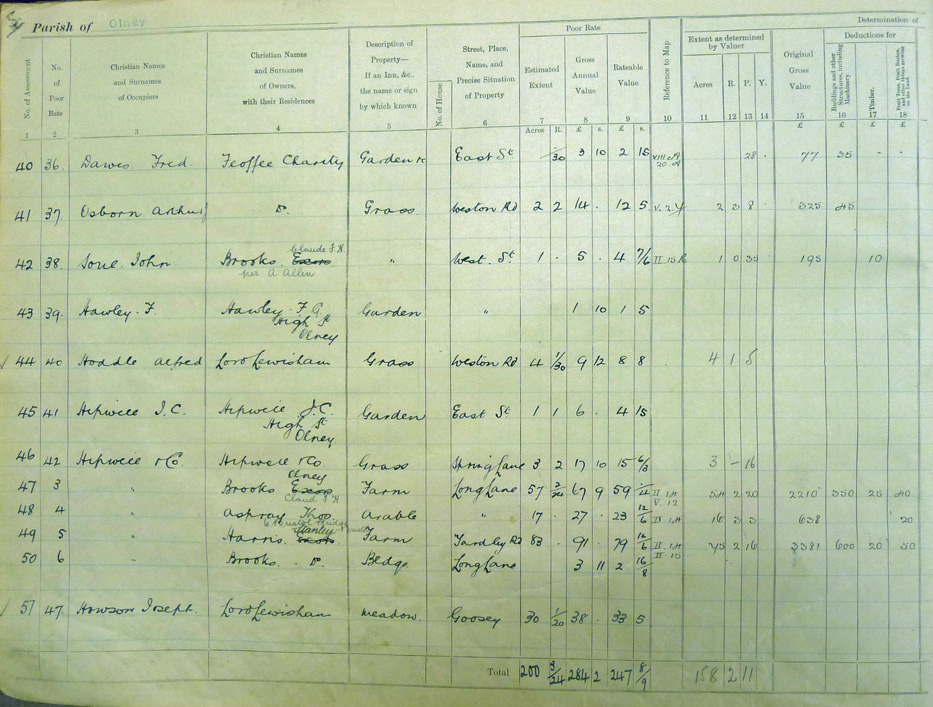 54
Parish of Olney
Determination of
No. of Assessment
No. of Poor Rate
Christian Names and Surnames of Occupiers
Christian Names and Surnames of Owners, with their Residences
Description of Property— If an Inn, &c. the name or sign by which known
No. of House
Street, Place, Name, and Precise Situation of Property
Poor Rate
Estimated Extent
Gross Annual Value
Rateable Value
Reference to Map
Extent as determined by Valuer
Acres R. P. Y.
Original Gross Value
Deductions for
Buildings and other Structures, including Machinery.
Timber.
Fruit Trees, Fruit Bushes, and other things growing on the Land.
1 2 3 4 5 6 7 8 9 10 11 12 13 14 15 16 17 18
Acres R. £ s. £ s. £ £ £ £
40 36. Dawes Fred. Feoffee Charity Garden East St /30 3 10 2 15 28 . 77 35 - -
41 37. Osborn Arthur D. Grass Weston Rd 2 2 14 . 12 5 2 3 8 . 325 45
Claude F. H.
42 38. Soul John Brooks Excors " West St 1 . 5 . 4 7/6 II. 15 1 0 35 195 10
per A Allen
43 39. Hawley F. Hawley F G Garden " 1 10 1 5
High St
Olney
√ 44 40 Hoddle Alfred Lord Lewisham Grass Weston Rd 4 1/30 9 12 8 8 4 1 5
45 41 Hipwell J. C. Hipwell J. C. Garden East St 1 1 6 . 4 15
High St
Olney
46 42 Hipwell & Co. Hipwell & Co Grass Spring Lane 3 2 17 10 15 6/3 3 - 16
Olney
47 3 " Brooks Excors Farm Long Lane 57 67 9 59 II. 14 54 2 20 2210 350 25 40
Claud F. H V. 12
48 4 " Aspray Thos Arable " 17 . 27 . 23 12/6 II. 14 16 3 3 638 20
Stanley
49 5 " Harris Excors Farm Yardley Rd 83 . 91 . 79 12/6 II. 14 75 2 16 3381 600 20 50
II. 15
50 6 " Brooks . D. Bldgs Long Lane 3 11 2 16/8
√ 51 47. Howson Joseph. Lord Lewisham meadow. Goosey 30 1/20 38 . 33 5
Total 200 3/24 284 2 247 8/9 158 2 11